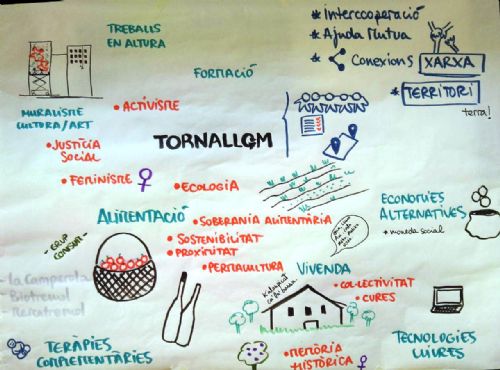 TREBALLS
EN ALTURA
* Intercooperació
* Ajuda Mutua
* Conexions XARXA
* TERRITORI
terra!
FORMACIÓ
MURALISME
CULTURA/ART
• ACTIVISME
• JUSTÍCIA
SOCIAL
• FEMINISME
TORNALLOM
• ECOLOGIA
ALIMENTACIÓ
- GRUP
CONSUM -
• SOBERANIA ALIMENTÀRIA
• SOSTENIBILITAT
• PROXIMITAT
• PERMACULTURA
ECONOMIES
ALTERNATIVES
* moneda social
- La Camperola
VIVENDA
• COL·LECTIVITAT
• CURES
TERÀPIES
COMPLEMENTÀRIES
• MEMÒRIA
HISTÒRICA
TECNOLOGIES
LLIURES